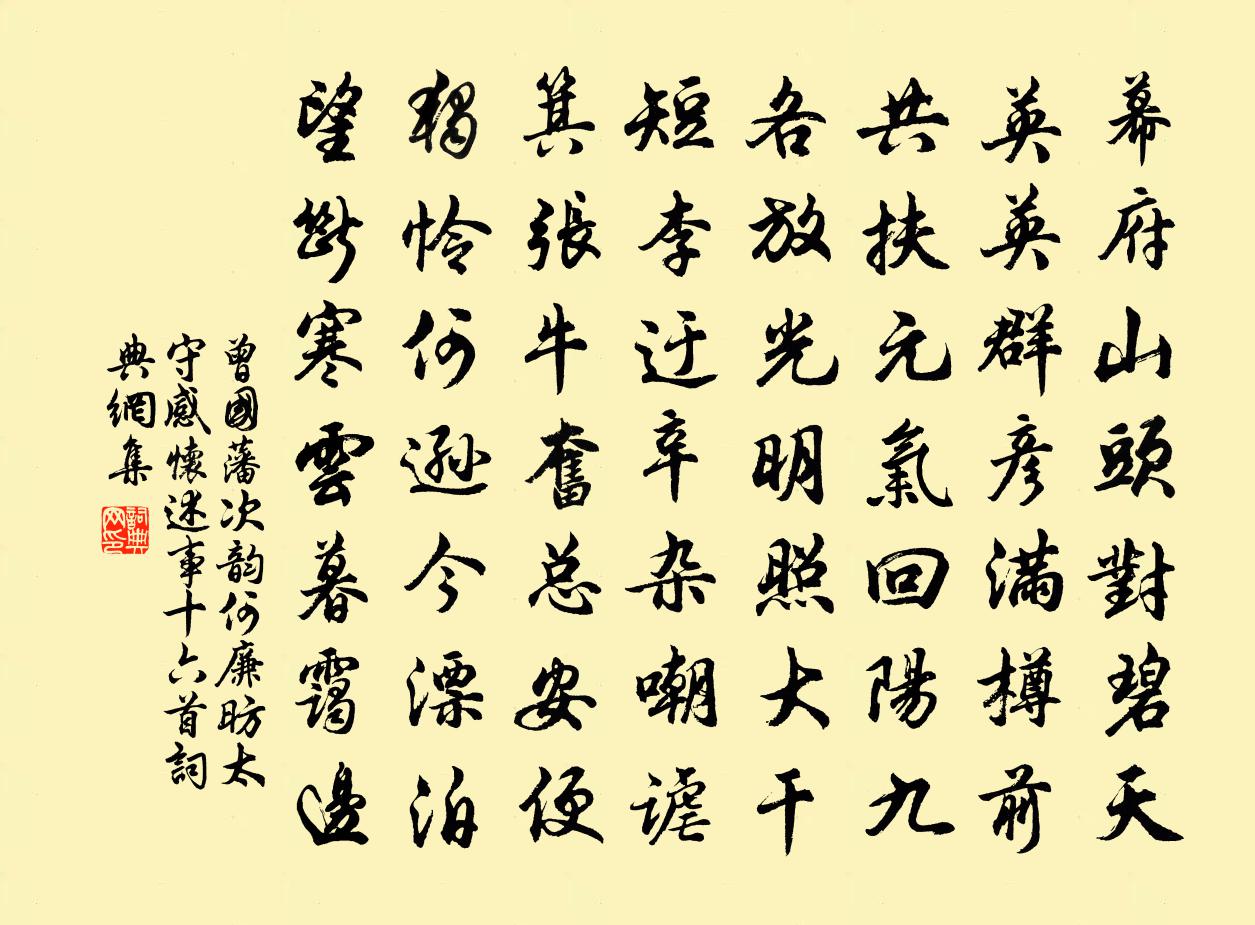 幕府山頭對碧天
英英群彥滿樽前
共扶元氣回陽九
各放光明照大千
短李迂辛杂嘲謔
箕張牛奮总安便
獨怜何遜今漂泊
望斷寒雲暮靄邊
曾國藩次韵何廉昉太
守感懷述事十六首詞
典網集
詞典网印